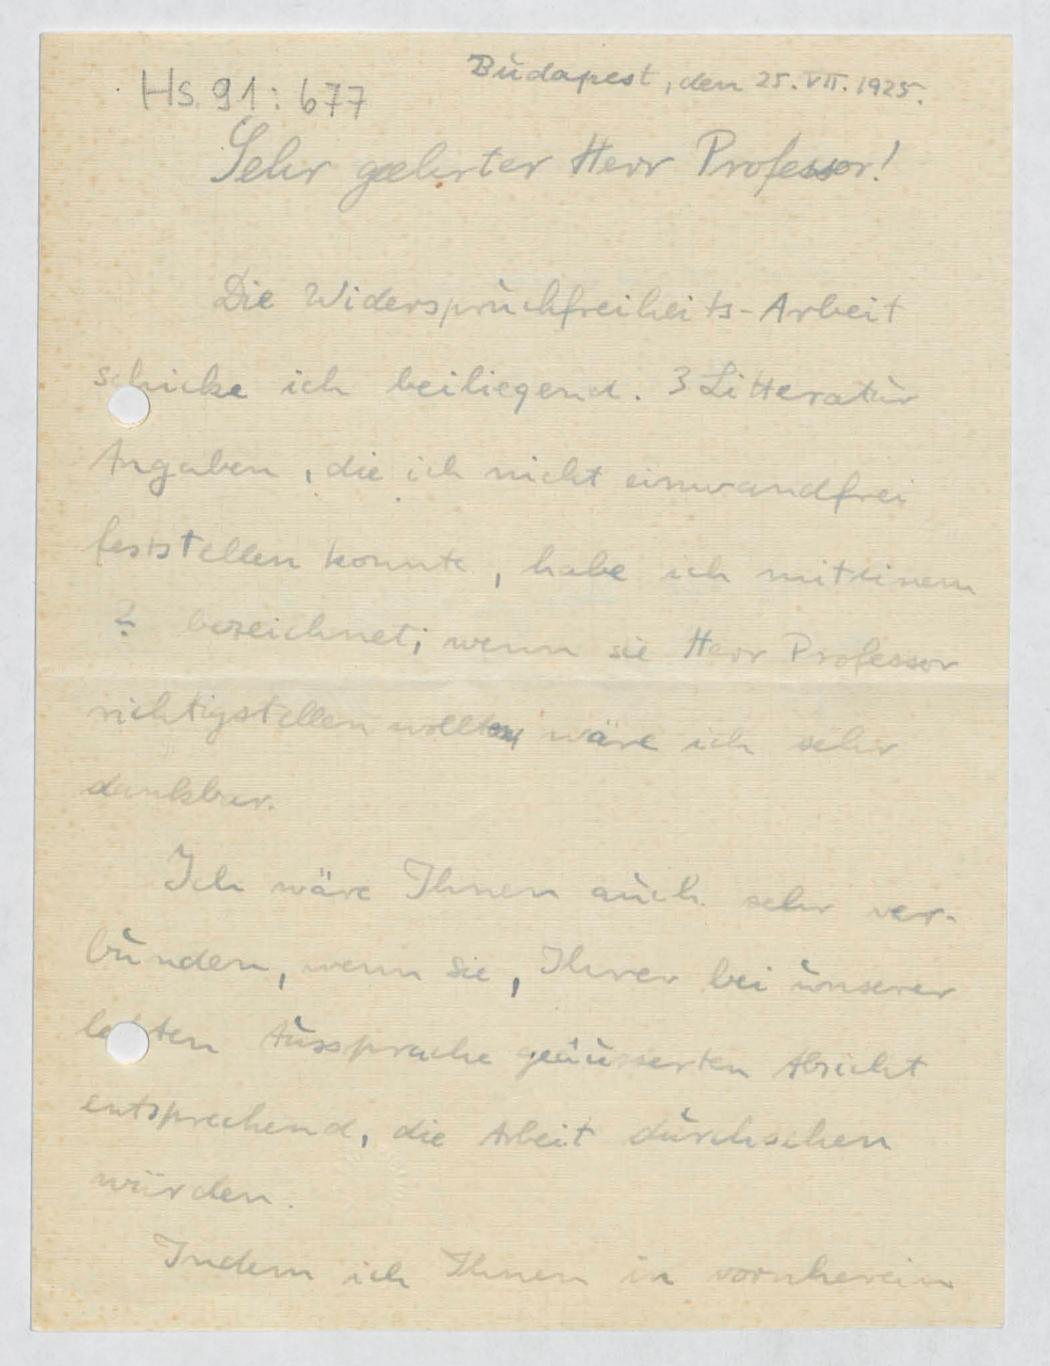 Hs. 91: 677
Budapest, den 25. VII. 1925.
Sehr geehrter Herr Professor!
Die Widerspruchfreiheits-Arbeit
schicke ich beiliegend. 3 Litteratur
Angaben, die ich nicht einwandfrei
feststellen konnte, habe ich mit einem
? bezeichnet; wenn sie Herr Professor
richtigstellen wollten wäre ich sehr
dankbar.
Ich wäre Ihnen auch sehr ver-
bunden, wenn Sie, Ihrer bei unserer
letzten Aussprache geäusserten Absicht
entsprechend, die Arbeit durchsehen
würden.
Indem ich Ihnen in vornherein